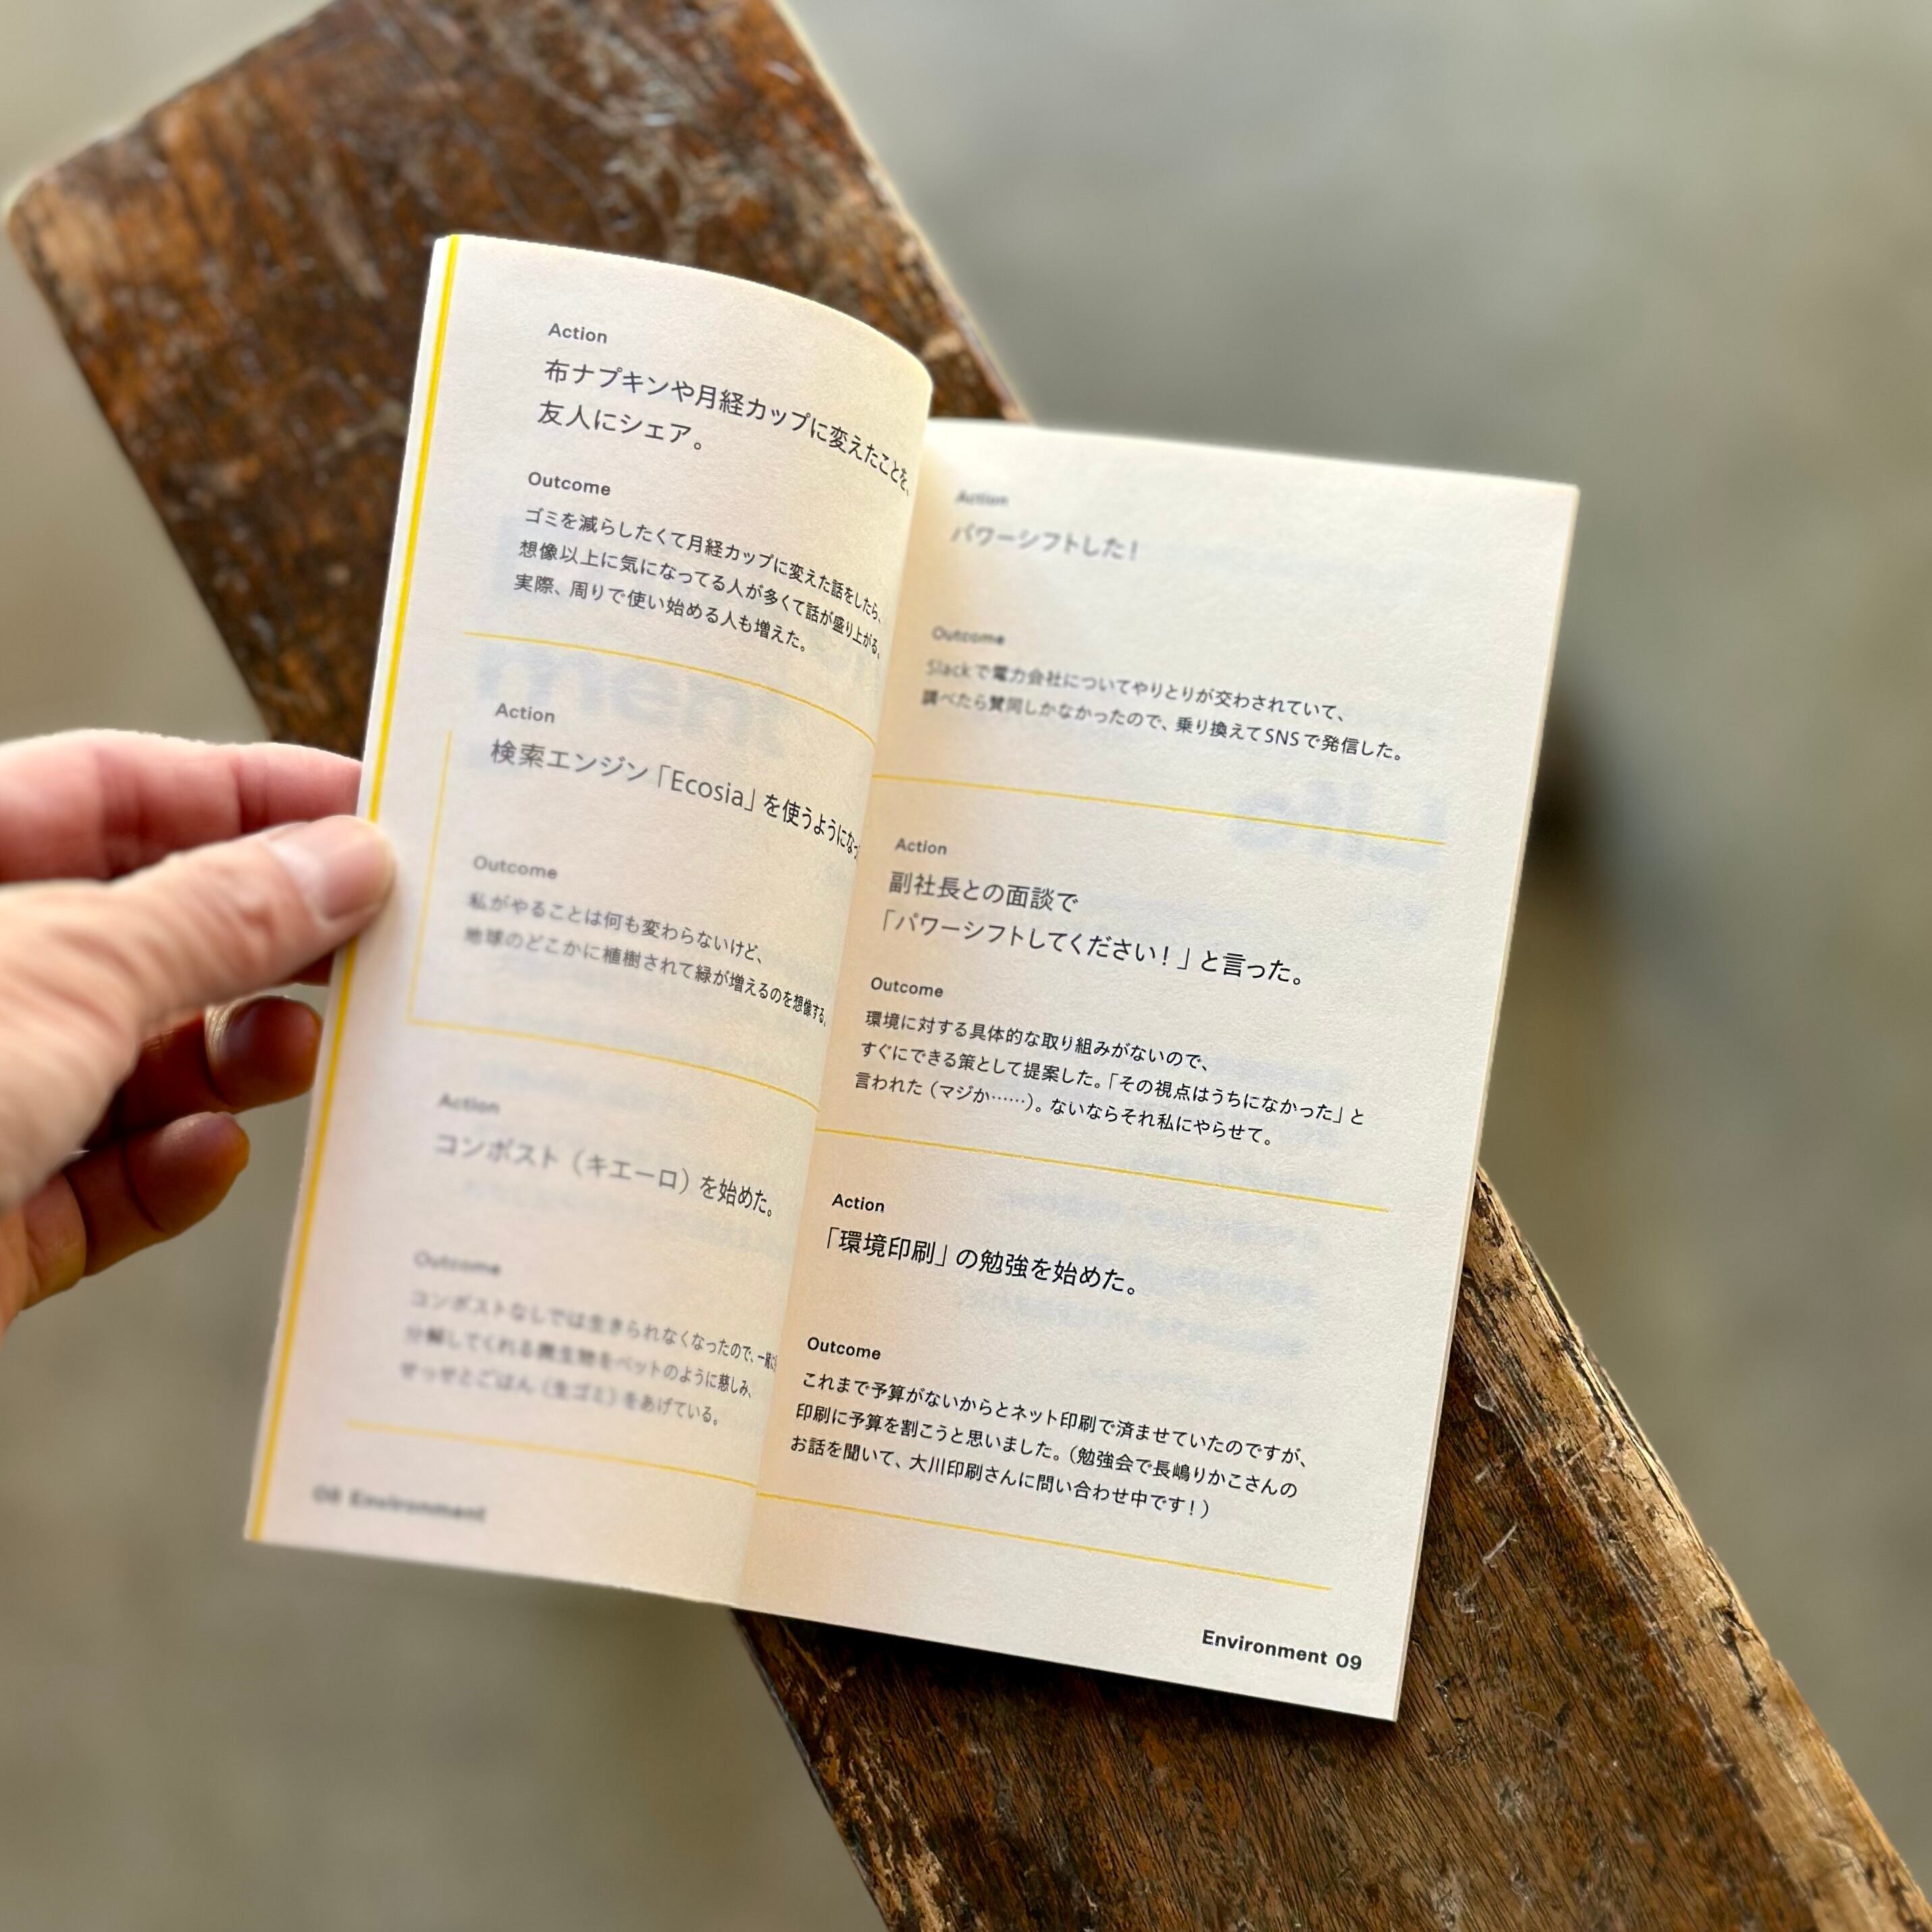 Action
布ナプキンや月経カップに変えたことを、
友人にシェア。
Outcome
ゴミを減らしたくて月経カップに変えた話をしたら、
想像以上に気になってる人が多くて話が盛り上がる。
実際、周りで使い始める人も増えた。
Action
検索エンジン「Ecosia」を使うようにな
Outcome
私がやることは何も変わらないけど、
地球のどこかに植樹されて緑が増えるのを想像する。
Action
コンポスト（キエーロ）を始めた。
Outcome
コンポストなしでは生きられなくなったので、一緒に
分解してくれる微生物をペットのように慈しみ、
せっせとごはん（生ゴミ）をあげている。
08 Environment
Action
パワーシフトした！
Outcome
Slackで電力会社についてやりとりが交わされていて、
調べたら賛同しかなかったので、乗り換えてSNSで発信した。
Action
副社長との面談で
「パワーシフトしてください！」と言った。
Outcome
環境に対する具体的な取り組みがないので、
すぐにできる策として提案した。「その視点はうちになかった」と
言われた（マジか……）。ないならそれ私にやらせて。
Action
「環境印刷」の勉強を始めた。
Outcome
これまで予算がないからとネット印刷で済ませていたのですが、
印刷に予算を割こうと思いました。（勉強会で長嶋りかこさんの
お話を聞いて、大川印刷さんに問い合わせ中です！）
Environment 09